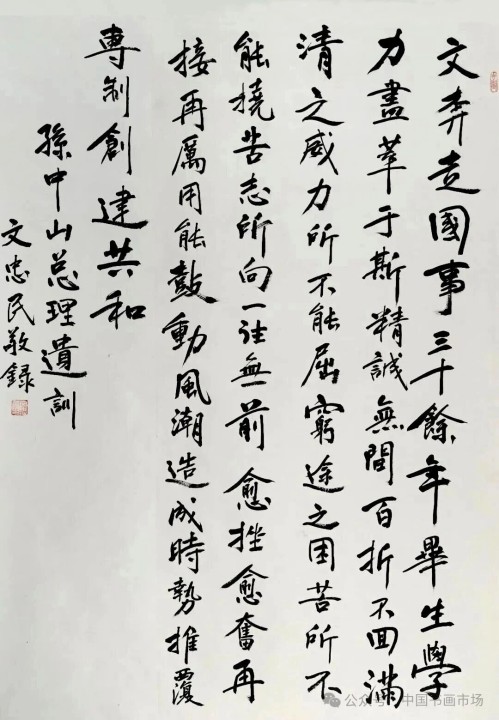 文奔走國事三十餘年畢生學
力盡萃于斯精誠無間百折不回滿
清之威力所不能屈窮途之困苦所不
能撓苦志所向一往無前愈挫愈奮再
接再厲用能鼓動風潮造成時勢推覆
專制創建共和
孫中山总理遺訓
文忠民敬錄
公众号·中国书画市场